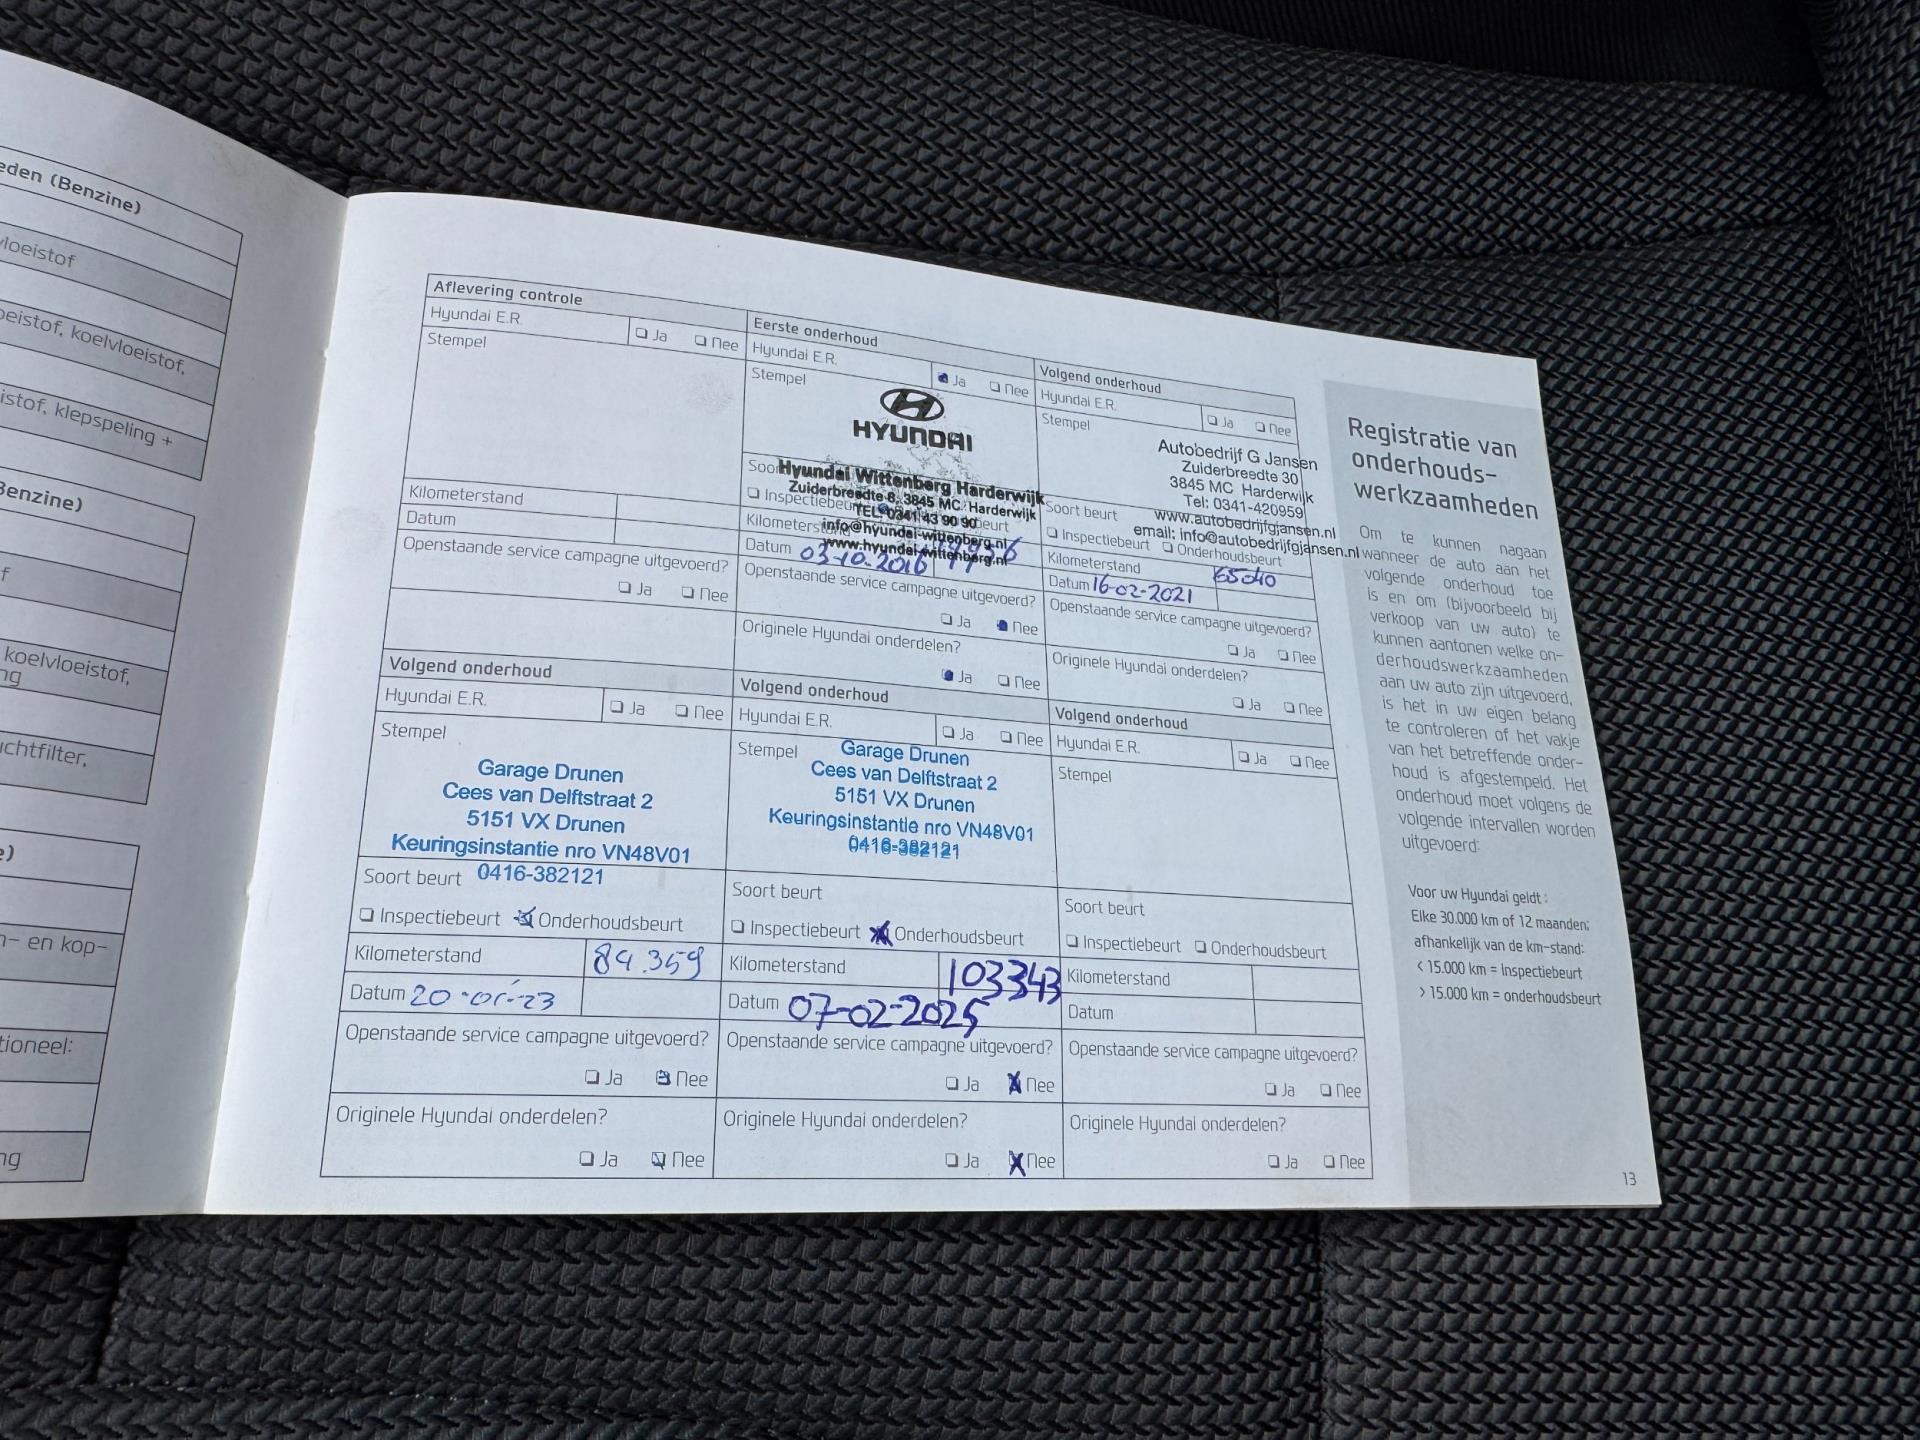 eden (Benzine)
vloeistof
oeistof, koelvloeistof,
istof, klepspeling +
Benzine)
f
koelvloeistof,
ng
uchtfilter,
e)
n- en kop-
tioneel:
ng
Aflevering controle
Hyundai E.R.
Ja Nee
Stempel
Kilometerstand
Datum
Openstaande service campagne uitgevoerd?
Ja Nee
Eerste onderhoud
Hyundai E.R.
Ja Nee
Stempel
HYUNDAI
Hyundai Wittenberg Harderwijk
Zuiderbreedte 8, 3845 MC. Harderwijk
TEL. 0341 43 90 90
info@hyundai-wittenberg.nl
www.hyundai-wittenberg.nl
Datum 03-10-2016
Openstaande service campagne uitgevoerd?
Ja Nee
Originele Hyundai onderdelen?
Ja Nee
Volgend onderhoud
Hyundai E.R.
Ja Nee
Stempel
Autobedrijf G Jansen
Zuiderbreedte 30
3845 MC Harderwijk
Tel: 0341-420959
www.autobedrijfgjansen.nl
email: info@autobedrijfgjansen.nl
Soort beurt
Inspectiebeurt Onderhoudsbeurt
Kilometerstand 65040
Datum 16-02-2021
Openstaande service campagne uitgevoerd?
Ja Nee
Originele Hyundai onderdelen?
Ja Nee
Volgend onderhoud
Hyundai E.R.
Ja Nee
Stempel
Garage Drunen
Cees van Delftstraat 2
5151 VX Drunen
Keuringsinstantie nro VN48V01
0416-382121
Soort beurt
Inspectiebeurt Onderhoudsbeurt
Kilometerstand 84.359
Datum 20-01-23
Openstaande service campagne uitgevoerd?
Ja Nee
Originele Hyundai onderdelen?
Ja Nee
Volgend onderhoud
Hyundai E.R.
Ja Nee
Stempel
Garage Drunen
Cees van Delftstraat 2
5151 VX Drunen
Keuringsinstantie nro VN48V01
0416-382121
Soort beurt
Inspectiebeurt Onderhoudsbeurt
Kilometerstand 103343
Datum 07-02-2025
Openstaande service campagne uitgevoerd?
Ja Nee
Originele Hyundai onderdelen?
Ja Nee
Volgend onderhoud
Hyundai E.R.
Ja Nee
Stempel
Soort beurt
Inspectiebeurt Onderhoudsbeurt
Kilometerstand
Datum
Openstaande service campagne uitgevoerd?
Ja Nee
Originele Hyundai onderdelen?
Ja Nee
Registratie van
onderhouds-
werkzaamheden
Om te kunnen nagaan
wanneer de auto aan het
volgende onderhoud toe
is en om (bijvoorbeeld bij
verkoop van uw auto) te
kunnen aantonen welke on-
derhoudswerkzaamheden
aan uw auto zijn uitgevoerd,
is het in uw eigen belang
te controleren of het vakje
van het betreffende onder-
houd is afgestempeld. Het
onderhoud moet volgens de
volgende intervallen worden
uitgevoerd:
Voor uw Hyundai geldt :
Elke 30.000 km of 12 maanden;
afhankelijk van de km-stand:
< 15.000 km = Inspectiebeurt
> 15.000 km = onderhoudsbeurt
13